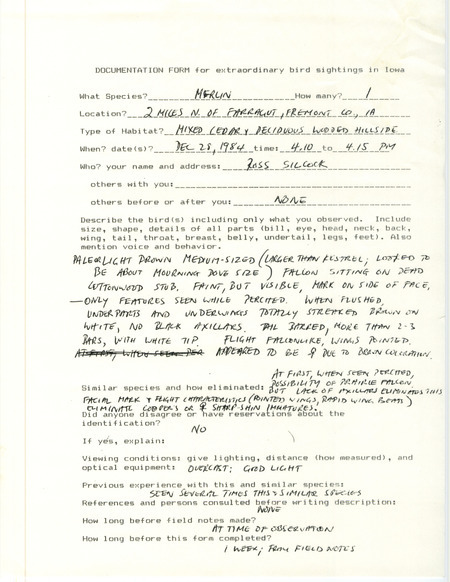 DOCUMENTATION FORM for extraordinary bird sightings in Iowa
What Species? MERLIN How many? 1
Location? 2 MILES N. OF FARRAGUT, FREMONT CO., IA
Type of Habitat? MIXED CEDAR & DECIDUOUS WOODED HILLSIDE
When? date(s)? DEC 28, 1984 time: 4.10 to 4.15 PM
Who? your name and address: ROSS SILCOCK
others with you:
others before or after you: NONE
Describe the bird(s) including only what you observed. Include
size, shape, details of all parts (bill, eye, head, neck, back,
wing, tail, throat, breast, belly, undertail, legs, feet). Also
mention voice and behavior.
PALE/LIGHT BROWN MEDIUM-SIZED (LARGER THAN KESTREL; LOOKED TO
BE ABOUT MOURNING DOVE SIZE) FALCON SITTING ON DEAD
COTTONWOOD STUB. FAINT, BUT VISIBLE, MARK ON SIDE OF FACE,
— ONLY FEATURES SEEN WHILE PERCHED. WHEN FLUSHED,
UNDERPARTS AND UNDERWINGS TOTALLY STREAKED BROWN ON
WHITE, NO BLACK AXILLARS. TAIL BARRED, MORE THAN 2-3
BARS, WITH WHITE TIP. FLIGHT FALCONLIKE, WINGS POINTED.
APPEARED TO BE ♀ DUE TO BROWN COLORATION.
AT FIRST, WHEN SEEN PERCHED,
Similar species and how eliminated: POSSIBILITY OF PRAIRIE FALCON,
BUT LACK OF AXILLARS ELIMINATES THIS
FACIAL MARK & FLIGHT CHARACTERISTICS (POINTED WINGS, RAPID WING BEATS)
ELIMINATE COOPER'S OR ♀ SHARP-SHIN IMMATURES.
Did anyone disagree or have reservations about the
identification?
NO
If yes, explain:
Viewing conditions: give lighting, distance (how measured), and
optical equipment: OVERCAST; GOOD LIGHT
Previous experience with this and similar species:
SEEN SEVERAL TIMES THIS & SIMILAR SPECIES
References and persons consulted before writing description:
NONE
How long before field notes made?
AT TIME OF OBSERVATION
How long before this form completed?
1 WEEK; FROM FIELD NOTES